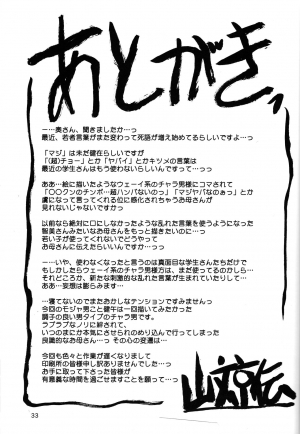 あとがき、
ー…奥さん、聞きましたかーっ
最近、若者言葉がまた変わって死語が増え始めてるらしいですよーっ
「マジ」は未だ健在らしいですが
「(超)チョー」とか「ヤバイ」とかキソメの言葉は
最近の学生さんはもう使わないらしいんですってーっっ
ああ…絵に描いたようなウェーイ系のチャラ男様にコマされて
「〇〇クンのチンポ…超ハンパないのっ」「マジヤバなのぉっ」とか
虜になって言ってくれる位に感化されちゃうお母さんが
見れないじゃないですかっ
以前なら絶対に口にしなかったような乱れた言葉を使うようになった
智美さんみたいなお母さんをもっと描きたいのに…っ
若い子が使ってくれないでどうやって
お母さんに伝えたらいいんですかーっっ
ー…いや、使わなくなったと言うのは真面目な学生さんたちだけで
もしかしたらウェーイ系のチャラ男様方は、まだ使ってるのかしら…
それどころか、新たな刺激的な乱れた言葉が生まれていたりして…
ああ…妄想は膨らみます…
…寝てないのでまたおかしなテンションですみませんっ
今回のモジャ男こと健午は一回描いてみたかった
調子の良い男タイプのチャラ男です。
ラブラブなノリに絆されて、
いつのまにか本気にさせられのめり込んで行ってしまった
良識的なお母さん…っ その心の変遷は…
今回も色々と作業が遅くなりまして
印刷所の皆様申し訳ありませんでした…っ
お手に取って下さった皆様が
有意義な時間を過ごせますことを願って…っ
33